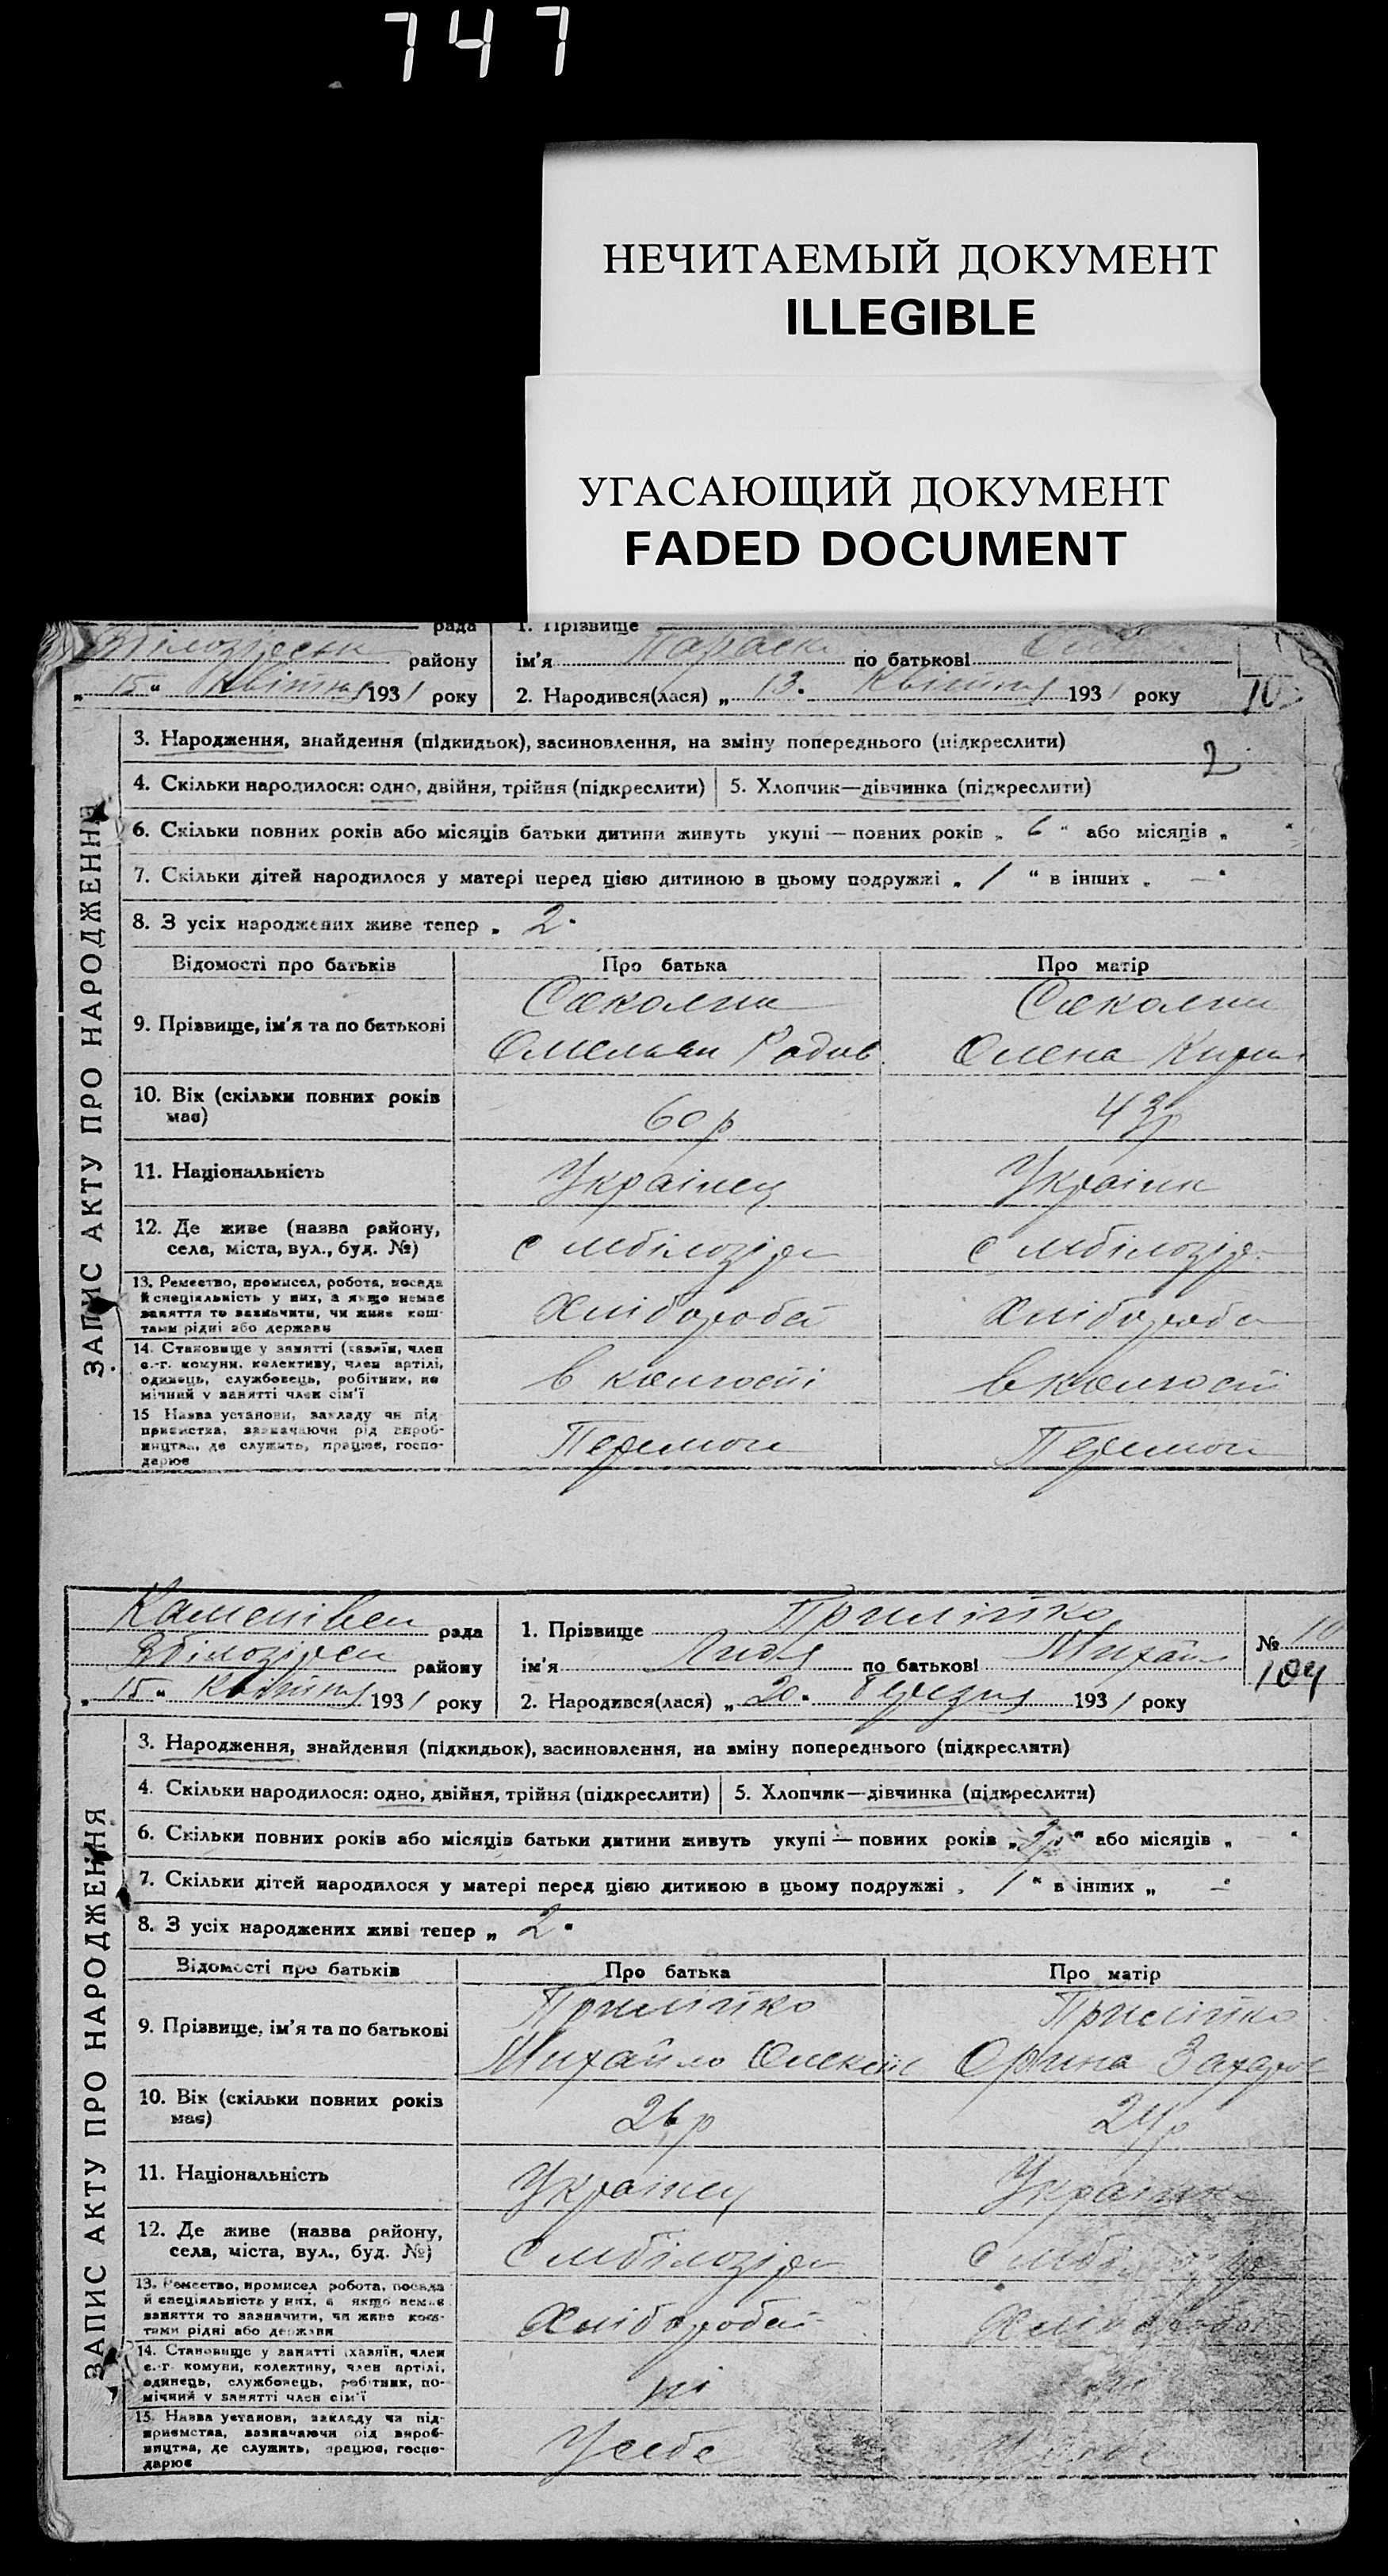 747
НЕЧИТАЕМЫЙ ДОКУМЕНТ
ILLEGIBLE
УГАСАЮЩИЙ ДОКУМЕНТ
FADED DOCUMENT
рада
1. Прізвище
району
ім'я Параск по батькові
„ 15 " Квітня 1931 року
2. Народився(лася) „ 13. Квітня 1931 року
ЗАПИС АКТУ ПРО НАРОДЖЕННЯ
3. Народження, знайдення (підкидьок), засиновлення, на зміну попереднього (підкреслити)
2
4. Скільки народилося: одно, двійня, трійня (підкреслити)
5. Хлопчик—дівчинка (підкреслити)
6. Скільки повних років або місяців батьки дитини живуть укупі — повних років „ 6 " або місяців „ "
7. Скільки дітей народилося у матері перед цією дитиною в цьому подружжі „ 1 " в інших „ — "
8. З усіх народжених живе тепер „ 2 "
Відомості про батьків
Про батька
Про матір
9. Прізвище, ім'я та по батькові
Омельян Радив
Олена
10. Вік (скільки повних років має)
60 р
43 р
11. Національність
Українец
Україн
12. Де живе (назва району,
села, міста, вул., буд. №)
с мбілозір
с мбілозір
13. Ремество, промисел, робота, посада
й спеціяльність у них, а якщо немає
заняття то зазначити, чи живе кош-
тами рідні або держави
Хлібороб
Хлібороб
14. Становище у занятті (хазяїн, член
с.-г. комуни, колективу, член артілі,
одинець, службовець, робітник, по
мічний у занятті член сім'ї
в колгоспі
в колгоспі
15 Назва установи, закладу чи під
приємства, зазначаючи рід вироб-
ництва, де служить, працює, госпо-
дарює
Перемог
Перемог
рада
1. Прізвище Прилипко
№ 10
району
ім'я Лидя по батькові Михайл
104
„ 15 " Квітня 1931 року
2. Народився(лася) „ 20. Березня 1931 року
ЗАПИС АКТУ ПРО НАРОДЖЕННЯ
3. Народження, знайдення (підкидьок), засиновлення, на зміну попереднього (підкреслити)
4. Скільки народилося: одно, двійня, трійня (підкреслити)
5. Хлопчик—дівчинка (підкреслити)
6. Скільки повних років або місяців батьки дитини живуть укупі — повних років „ " або місяців „ — "
7. Скільки дітей народилося у матері перед цією дитиною в цьому подружжі „ 1 " в інших „ — "
8. З усіх народжених живі тепер „ 2 "
Відомості про батьків
Про батька
Про матір
9. Прізвище, ім'я та по батькові
Прилипко
Прилипко
Михайло Олексій
Орина Захаров
10. Вік (скільки повних років має)
26 р
24 р
11. Національність
Українец
Українк
12. Де живе (назва району,
села, міста, вул., буд. №)
с мбілозір
с
13. Ремество, промисел робота, посада
й спеціяльність у них, а якщо немає
заняття то зазначити, чи живе кош-
тами рідні або держави
Хлібороб
14. Становище у занятті (хазяїн, член
с.-г. комуни, колективу, член артілі,
одинець, службовець, робітник, по-
мічний у занятті член сім'ї
15. Назва установи, закладу чи під-
приємства, зазначаючи рід вироб-
ництва, де служить, працює, госпо-
дарює
У себе